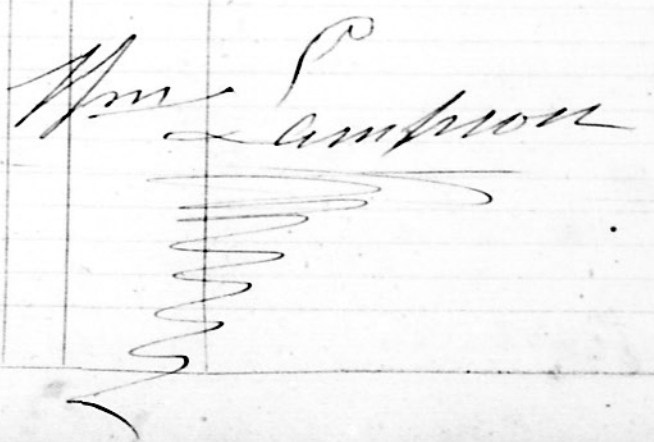 Wm Lampson